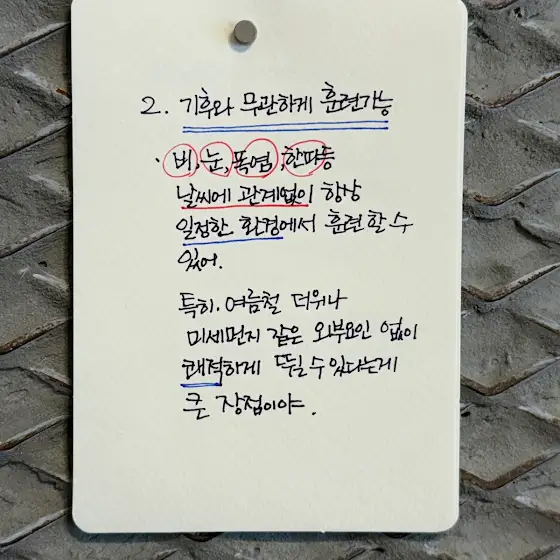 2. 기후와 무관하게 훈련가능
· 비, 눈, 폭염, 한파등
날씨에 관계없이 항상
일정한 환경에서 훈련할 수
있어.
특히. 여름철 더위나
미세먼지 같은 외부요인 없이
쾌적하게 뛸 수 있다는게
큰 장점이야.